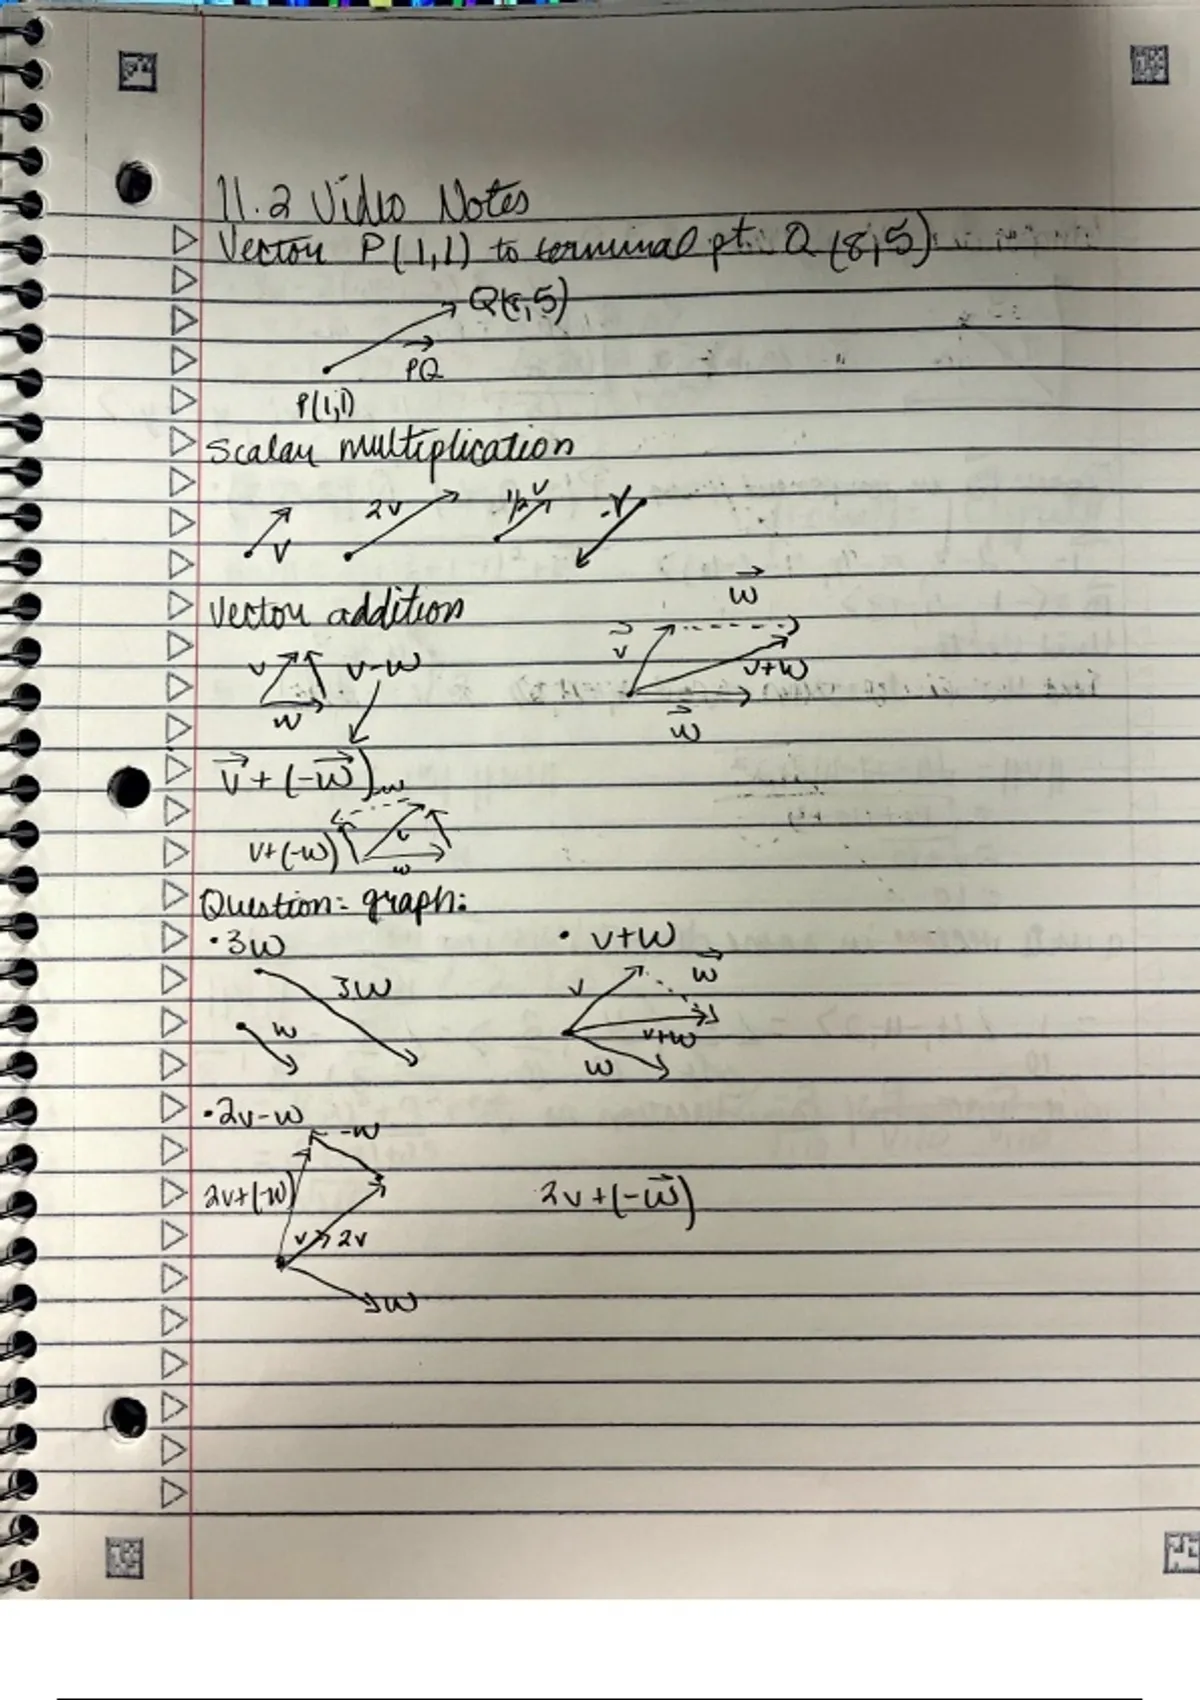 11.2 Video Notes
Vector P(1,1) to terminal pt. Q (8,5)
Q(8,5)
PQ
P(1,1)
Scalar multiplication
v 2v 1/2 v -v
Vector addition
w
v
v v-w
v+w
w
w
v + (-w)
-w
v+(-w) v
w
Question: graph:
•3w • v+w
3w v w
w v+w
w
•2v-w
-w
2v+(-w) 2v+(-w)
v 2v
w